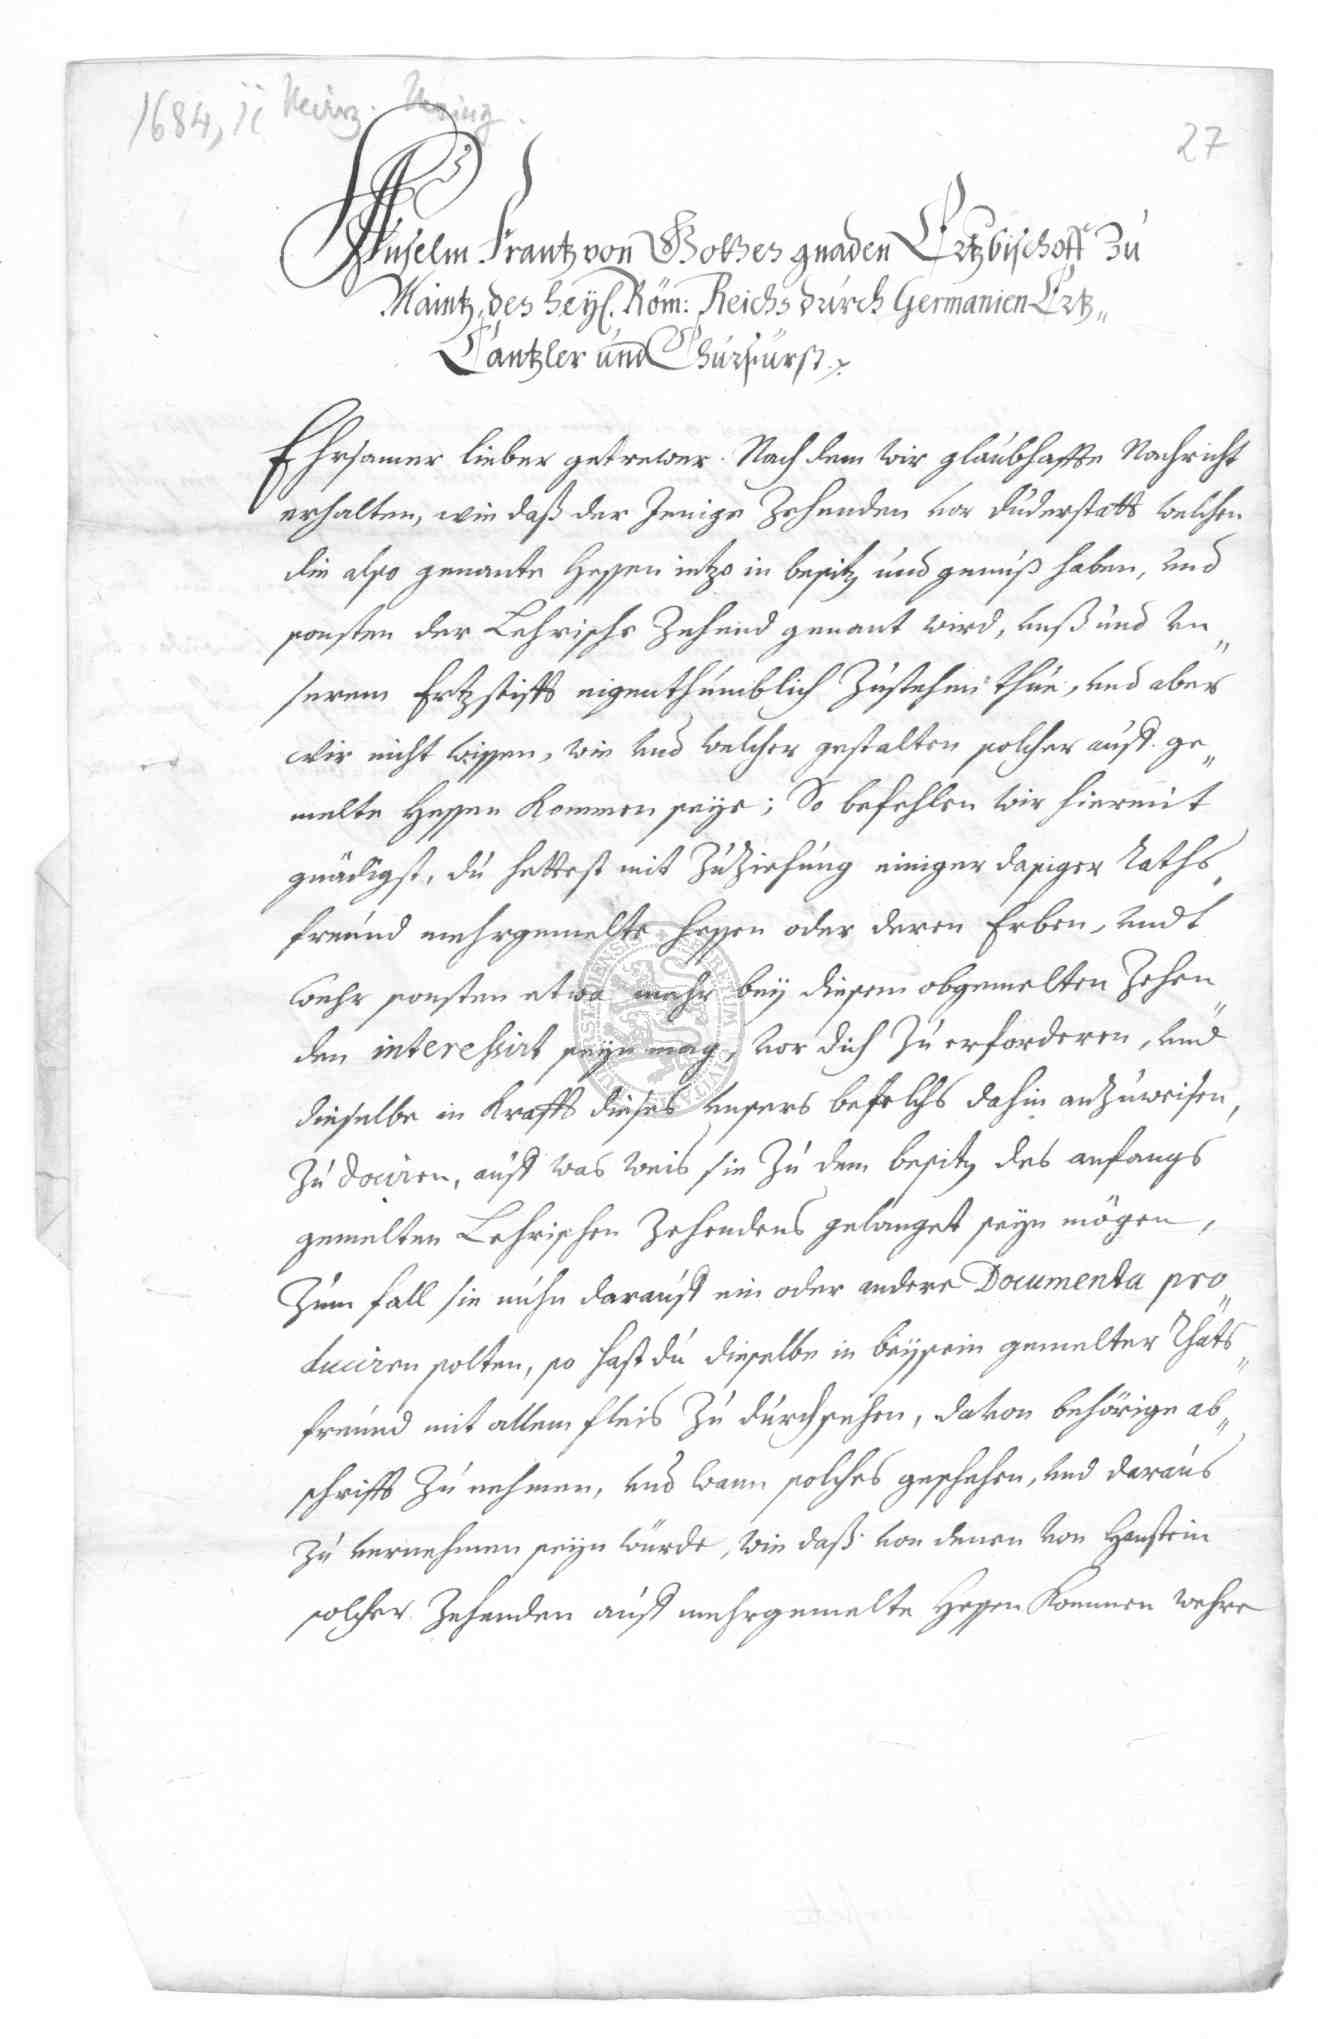 1684, ii März. Mainz.
27
Anselm Frantz von Gottes gnaden Ertzbischoff zu
Maintz, des heyl. Röm: Reichs durch Germanien Ertz„
Cantzler und Churfürst.
Ehrsamer lieber getrewer. Nach dem wir glaubhaffte Nachricht
erhalten, wie daß der Jenige Zehenden vor Duderstatt welchen
die also genante Hessen ietzo in besitz und genuß haben, und
sonsten der Lehrische Zehend genant wird, unß und un„
serem Ertzstifft eigenthumblich zustehen thue, und aber
wir nicht wissen, wie und welcher gestalten solcher auff ge„
melte Hessen kommen seye; So befehlen wir hiermit
gnädigst, du hettest mit Zuziehung einiger dasiger Raths„
freund mehrgemelte Hessen oder deren Erben, undt
wehr sonsten etwa mehr bey diesem obgemelten Zehen„
den interessirt seyn mag, vor dich zu erforderen, und
dieselbe in Krafft dieses unsers befelchs dahin anzuweisen,
zu dociren, auff was weis sie zu dem besitz des anfangs
gemelten Lehrischen Zehendens gelanget seyn mögen,
Zum fall sie nuhn darauff ein oder andere Documenta pro„
duciren solten, so hast du dieselbe in beysein gemelter Rhats„
freund mit allem fleis zu durchsehen, davon behörige ab„
schrifft zu nehmen, und wann solches geschehen, und daraus
zu vernehmen seyn würde, wie daß von denen von Hanstein
solcher Zehenden auff mehrgemelte Hessen kommen wehre